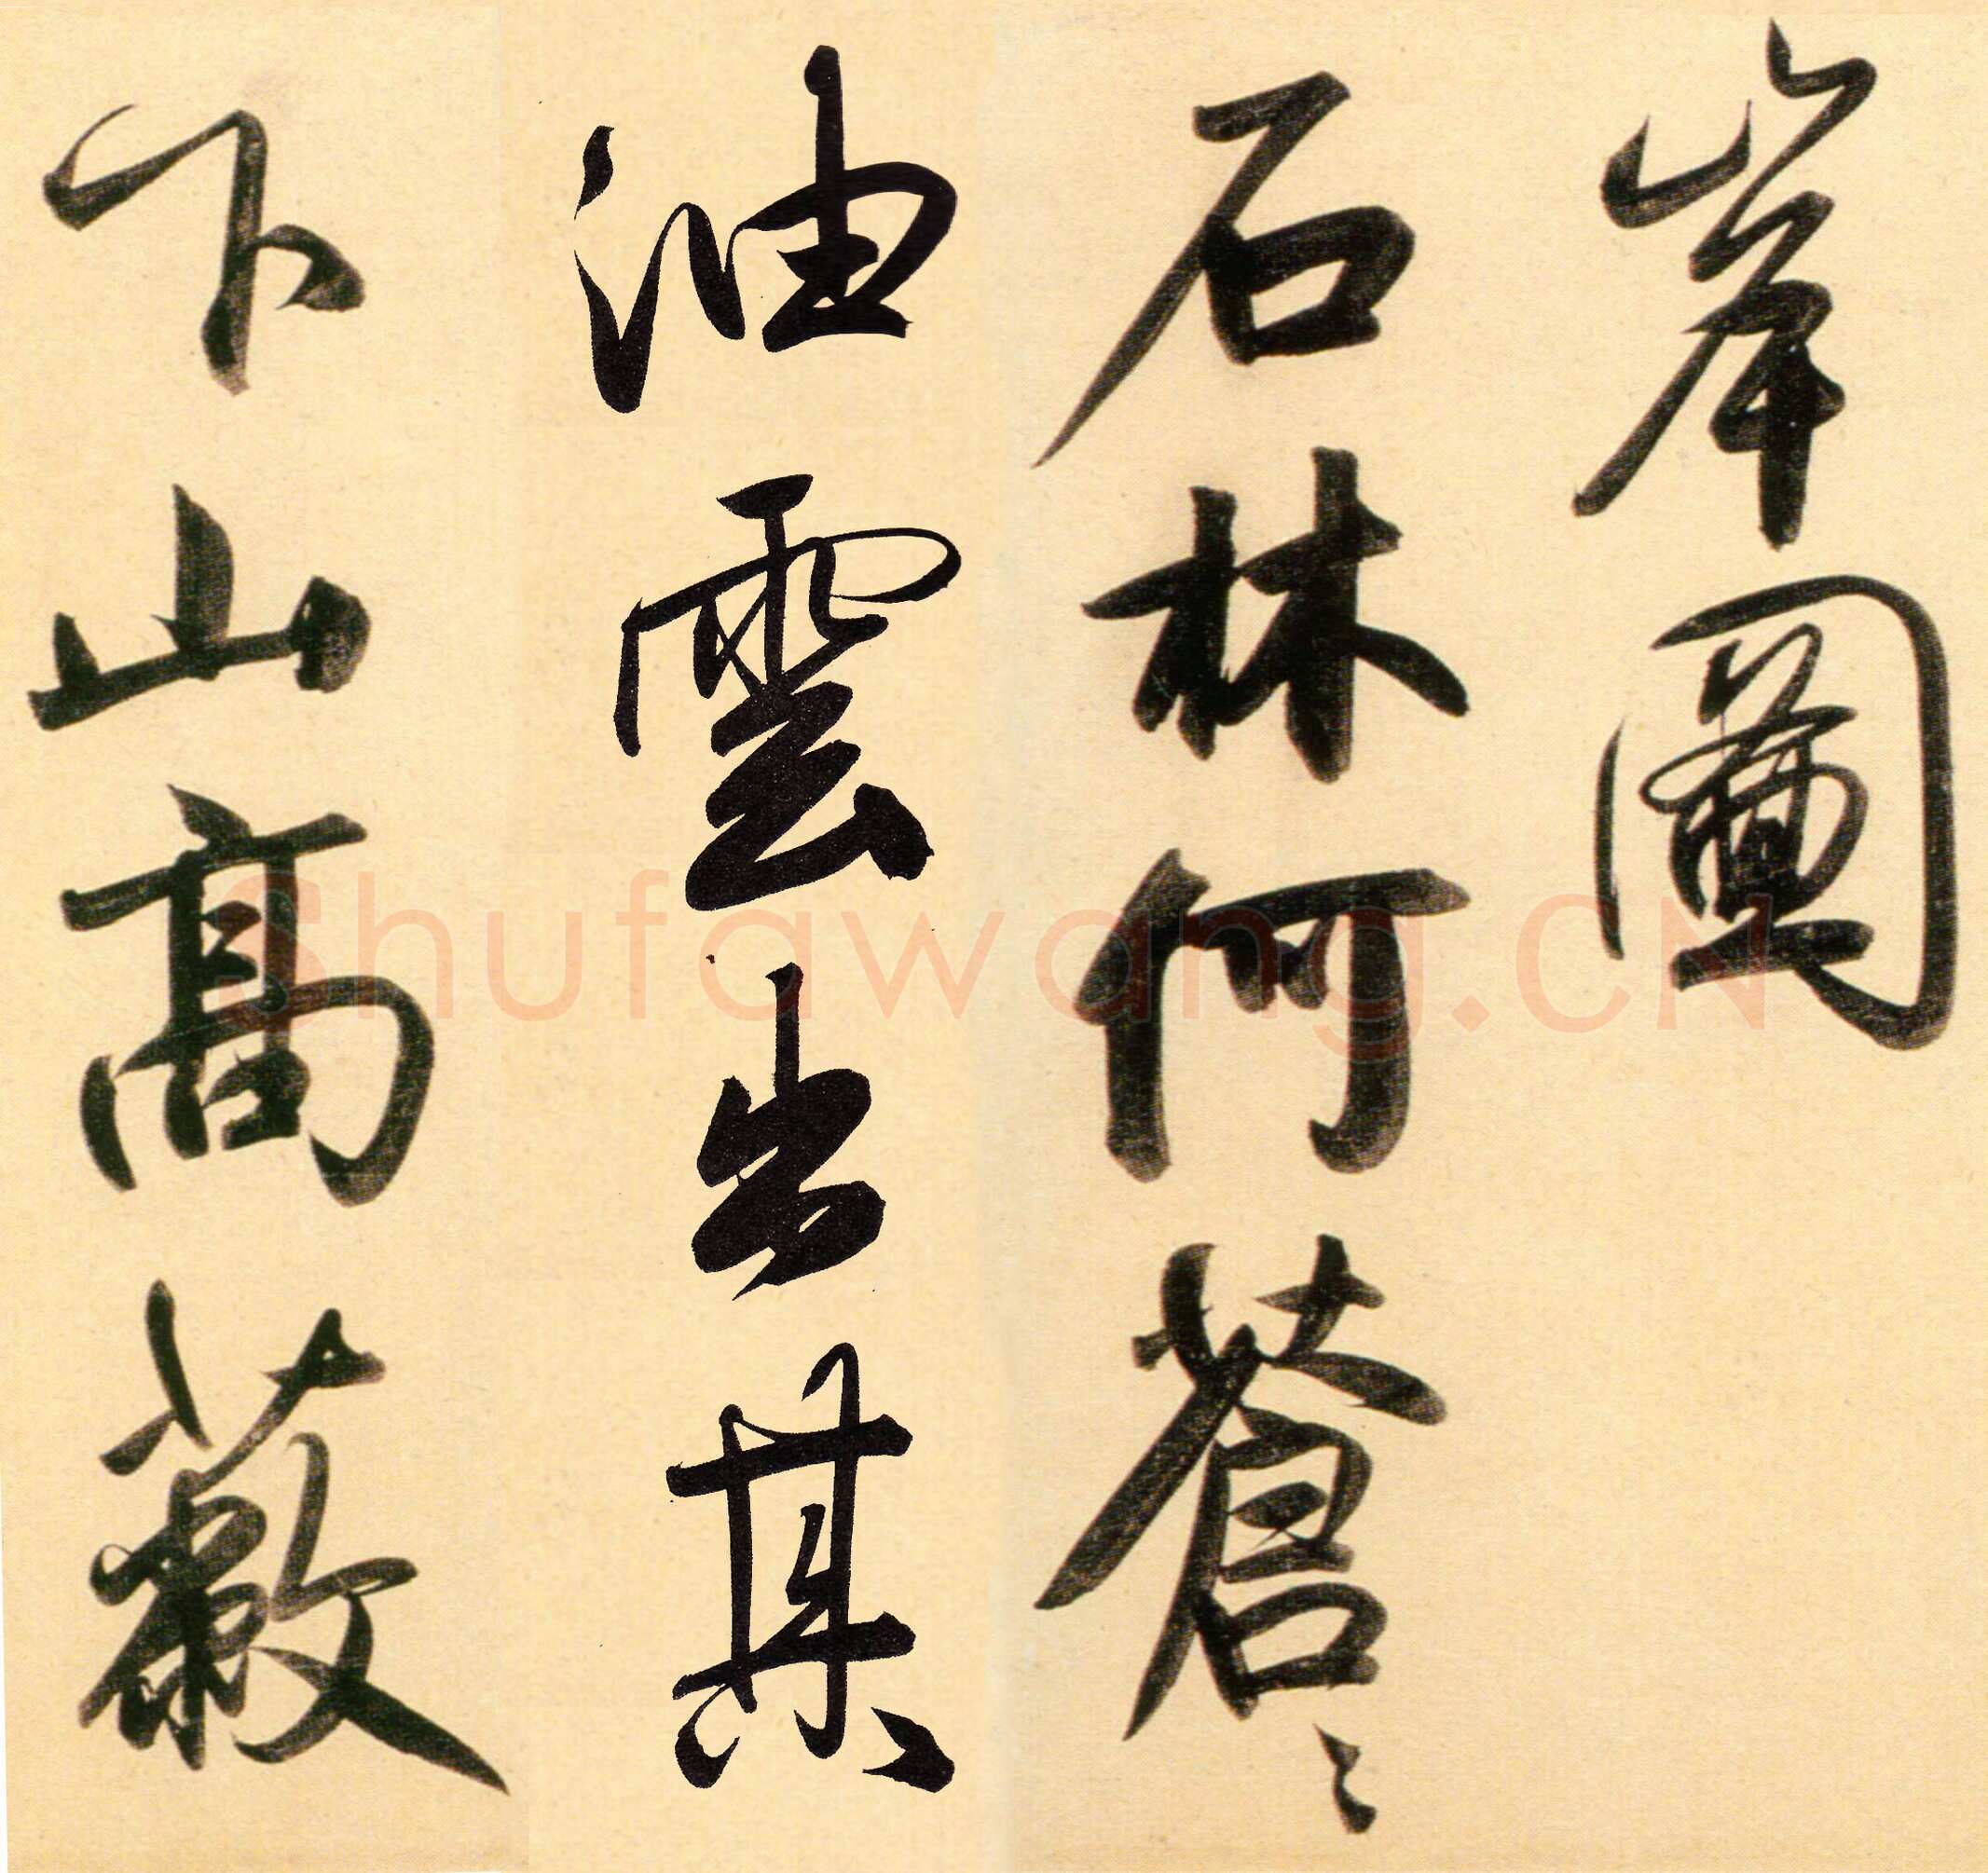 岸圖
石林何蒼〻
油雲出其
下山高蔽
Shufawang.CN